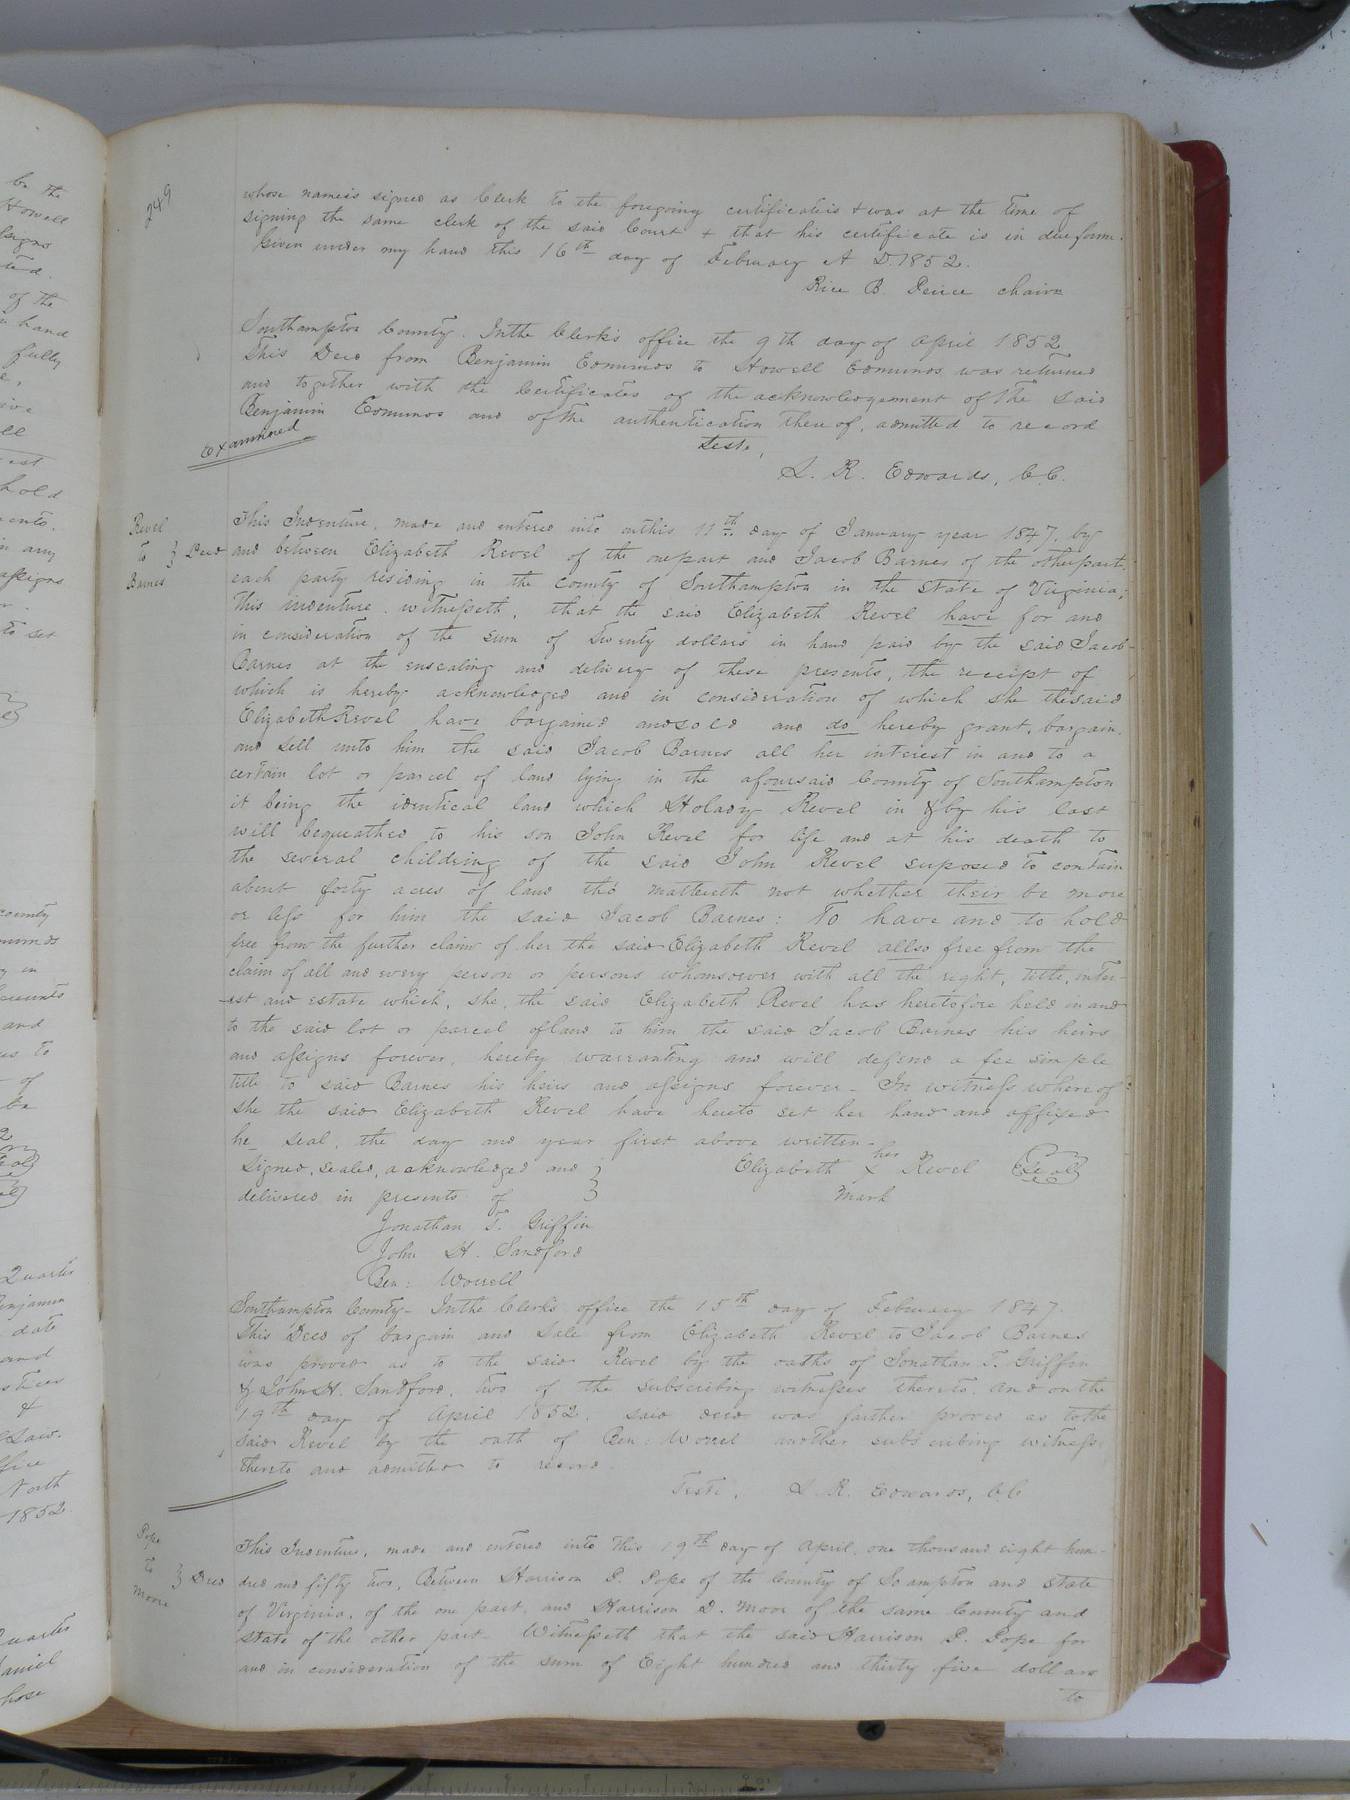 249
whose nameis signed as Clerk to the foregoing certificateis & was at the time of
signing the same clerk of the said Court & that his certificate is in dueform.
Given under my hand this 16th day of February A D. 1852.
Rice B. Peirce chairn
Southampton County. Inthe Clerk's office the 9th day of April 1852
This Deed from Benjamin Edmunds to Howell Edmunds was returned
and together with the Certificates of the acknowledgement of the said
Benjamin Edmunds and of the authentication thereof, admitted to record
Examined
Teste,
L. R. Edwards, C.C.
Revel
to } Deed
Barnes
This Indenture, made and entered into onthis 11th day of January year 1847, by
and between Elizabeth Revel of the onepart and Jacob Barnes of the otherpart,
each party residing in the County of Southampton in the State of Virginia;
This indenture witnesseth, that the said Elizabeth Revel have for and
in consideration of the sum of Twenty dollars in hand paid by the said Jacob
Barnes at the ensealing and delivery of these presents, the receipt of
which is hereby acknowledged and in consideration of which she thesaid
Elizabeth Revel have bargained andsold and do hereby grant, bargain,
and sell unto him the said Jacob Barnes all her interest in and to a
certain lot or parcel of land lying in the afoursaid County of Southampton
it being the identical land which Holady Revel in & by his last
will bequeathed to his son John Revel for life and at his death to
the several childring of the said John Revel suposed to contain
about forty acres of land tho mattereth not whether their be more
or less for him the said Jacob Barnes: To have and to hold
free from the further claim of her the said Elizabeth Revel allso free from the
claim of all and every person or persons whomsoever with all the right, title, inter-
-est and estate which, she, the said Elizabeth Revel has heretofore held in and
to the said lot or parcel ofland to him the said Jacob Barnes his heirs
and assigns forever, hereby warranting and will defend a fee simple
title to said Barnes his heirs and assigns forever - In witness whereof
she the said Elizabeth Revel have hereto set her hand and affixed
he seal, the day and year first above written.
Signed, sealed, acknowledged and } Elizabeth her x Revel Seal
delivered in presents of } mark
Jonathan T. Griffin
John H. Sandford
Ben: Worrell
Southampton County - Inthe Clerk's office the 15th day of February 1847.
This Deed of bargain and Sale from Elizabeth Revel to Jacob Barnes
was proved as to the said Revel by the oaths of Jonathan T. Griffin
& John H. Sandford, two of the subscribing witnesses thereto. and on the
19th day of April 1852, said deed was farther proved as tothe
said Revel by the oath of Ben: Worrel another subscribing witness
thereto and admitted to record.
Teste, L. R. Edwards, C.C
Pope
to } Deed
Moore
This Indenture, made and entered into this 19th day of April, one thousand eight hun-
dred and fifty two, Between Harrison P. Pope of the County of So ampton and State
of Virginia, of the one part, and Harrison D. Moor of the same County and
State of the other part - Witnesseth that the said Harrison P. Pope for
and in consideration of the sum of Eight hundred and thirty five dollars
to